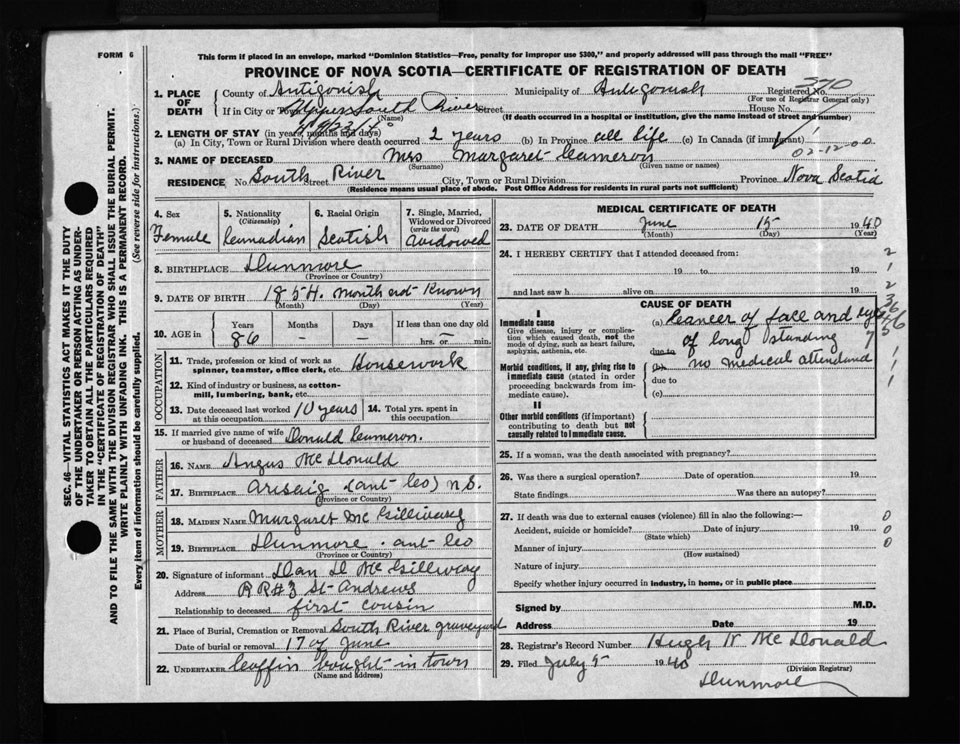 FORM 6
This form if placed in an envelope, marked "Dominion Statistics—Free, penalty for improper use $300," and properly addressed will pass through the mail "FREE"
PROVINCE OF NOVA SCOTIA—CERTIFICATE OF REGISTRATION OF DEATH
SEC. 46—VITAL STATISTICS ACT MAKES IT THE DUTY
OF THE UNDERTAKER OR PERSON ACTING AS UNDER-
TAKER TO OBTAIN ALL THE PARTICULARS REQUIRED
IN THE "CERTIFICATE OF REGISTRATION OF DEATH"
AND TO FILE THE SAME WITH THE DIVISION REGISTRAR WHO SHALL ISSUE THE BURIAL PERMIT.
WRITE PLAINLY WITH UNFADING INK. THIS IS A PERMANENT RECORD.
Every item of information should be carefully supplied. (See reverse side for instructions.)
1. PLACE OF DEATH
County of Antigonish Municipality of Antigonish Registered No. 370
(For use of Registrar General only)
If in City or Town Upper South River Street House No.
(Name) (If death occurred in a hospital or institution, give the name instead of street and number)
2. LENGTH OF STAY (in years, months and days)
(a) In City, Town or Rural Division where death occurred 2 years (b) In Province all life (c) In Canada (if immigrant)
02-12-00
3. NAME OF DECEASED Mrs Margaret Cameron
(Surname) (Given name or names)
RESIDENCE No. South Street River City, Town or Rural Division Province Nova Scotia
(Residence means usual place of abode. Post Office Address for residents in rural parts not sufficient)
4. Sex
Female
5. Nationality
(Citizenship)
Cannadian
6. Racial Origin
Scotish
7. Single, Married,
Widowed or Divorced
(write the word)
Widowed
8. BIRTHPLACE Dunmore
(Province or Country)
9. DATE OF BIRTH 1854. month not known
(Month) (Day) (Year)
10. AGE in
Years Months Days If less than one day old
86 – – hrs. or min.
OCCUPATION
11. Trade, profession or kind of work as
spinner, teamster, office clerk, etc. Housework
12. Kind of industry or business, as cotton-
mill, lumbering, bank, etc.
13. Date deceased last worked
at this occupation 10 years
14. Total yrs. spent in
this occupation
15. If married give name of wife
or husband of deceased Donald Cameron.
FATHER
16. NAME Angus McDonald
17. BIRTHPLACE Arisaig (ant co) N.S.
(Province or Country)
MOTHER
18. MAIDEN NAME Margaret McGillivary
19. BIRTHPLACE Dunmore . ant co
(Province or Country)
20. Signature of informant Dan D McGillivray
Address RR#3 St-Andrews
Relationship to deceased first cousin
21. Place of Burial, Cremation or Removal South River graveyard
Date of burial or removal 17 of June
22. UNDERTAKER Coffin bought in town
(Name and Address)
MEDICAL CERTIFICATE OF DEATH
23. DATE OF DEATH June 15 1940
(Month) (Day) (Year)
24. I HEREBY CERTIFY that I attended deceased from:
19 to 19
and last saw h alive on 19
CAUSE OF DEATH
I
Immediate cause
Give disease, injury or complica-
tion which caused death, not the
mode of dying, such as heart failure,
asphyxia, asthenia, etc.
(a) Cancer of face and eye
of long standing
due to
Morbid conditions, if any, giving rise to
immediate cause (stated in order
proceeding backwards from im-
mediate cause).
(b) no medical attendand
due to
(c)
II
Other morbid conditions (if important)
contributing to death but not
causally related to immediate cause.
25. If a woman, was the death associated with pregnancy?
26. Was there a surgical operation? Date of operation 19
State findings Was there an autopsy?
27. If death was due to external causes (violence) fill in also the following:—
Accident, suicide or homicide? Date of injury 19
(State which)
Manner of injury
(How sustained)
Nature of injury
Specify whether injury occurred in industry, in home, or in public place
0
0
0
Signed by M.D.
Address Date 19
28. Registrar's Record Number Hugh N McDonald
29. Filed July 5 1940
(Division Registrar)
Dunmore